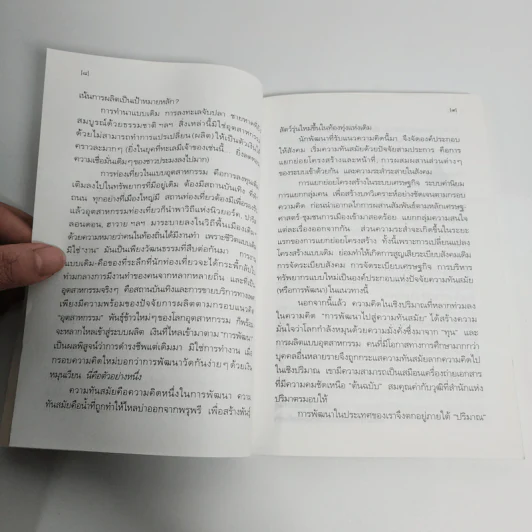 [๘]
เน้นการผลิตเป็นเป้าหมายหลัก?
การทำนาแบบเดิม การลงทะเลจับปลา
สมบูรณ์ด้วยธรรมชาติ ฯลฯ สิ่งเหล่านี้มิใช่อุตสาหกรรม
ด้วยไม่สามารถทำการแปรเปลี่ยน (ผลิต) ให้เป็นตัวเงิน
คราวละมากๆ (ยิ่งในยุคที่ทะเลมีเจ้าของเช่นนี้
ความเชื่อมั่นเดิมๆ ของชาวประมงลงไปมาก)
การท่องเที่ยวในแบบอุตสาหกรรม คือการลงทุน
เติมลงไปในทรัพยากรที่มีอยู่เดิม ต้องมีสถานบันเทิง
ถนน ทุกอย่างที่เมืองใหญ่มี สถานท่องเที่ยวต้องมี
แล้วอุตสาหกรรมท่องเที่ยวก็นำพาวิถีแห่งนิวยอร์ค
ลอนดอน ฮาวาย ฯลฯ มาระบายลงในวิถีพื้นเมืองเดิม
ด้วยความหมายว่าคนในท้องถิ่นได้มีงานทำ เพราะชีวิตแบบเดิม
มิใช่ "งาน" มันเป็นเพียงวัฒนธรรมที่สืบต่อกันมา
แบบเดิม-คือของที่ระลึกที่นักท่องเที่ยวจะได้กระพี้กลับไป
ท่ามกลางการมีงานทำของคนจากหลากหลายถิ่น
อุตสาหกรรมจริงๆ คือสถานบันเทิงและการขายบริการทางเพศ
เพียงมีความพร้อมของปัจจัยการผลิตตามกรอบแนวคิด
"อุตสาหกรรม" พันธุ์ข้าวใหม่ๆ ของโลกอุตสาหกรรม ก็พร้อม
จะหลากไหลเข้าสู่ระบบผลิต เงินที่ไหลเข้ามาตาม "การพัฒนา"
เป็นผลพิสูจน์ว่าการดำรงชีพแต่เดิมมา มิใช่การทำงาน เมื่อ
กรอบความคิดใหม่บอกว่าการพัฒนาวัดกันง่ายๆ ด้วยเงิน
หมุนเวียน นี่คือตัวอย่างหนึ่ง
ความทันสมัยคือความคิดหนึ่งในการพัฒนา ความ
ทันสมัยคือน้ำที่ถูกทำให้ไหลบ่าออกจากพรุพรี เพื่อสร้างพันธุ์
[๙]
สัตว์รุ่นใหม่ขึ้นในท้องทุ่งแห่งเดิม
นักพัฒนาที่รับแนวความคิดนี้มา จึงจัดองค์ประกอบ
ให้สังคม เริ่มความทันสมัยด้วยปัจจัยสามประการ คือการ
แยกย่อยโครงสร้างและหน้าที่, การผสมผสานส่วนต่างๆ
ของระบบเข้าด้วยกัน และความระส่ำระสายในสังคม
การแยกย่อยโครงสร้างในระบบเศรษฐกิจ ระบบค่านิยม
การแยกกลุ่มคน เพื่อสร้างบทวิเคราะห์อย่างชัดเจนตามกรอบ
ความคิด ก่อนนำเอากลไกการผสานสัมพันธ์ตามหลักเศรษฐ-
ศาสตร์-ชุมชน-การเมืองเข้ามาสอดร้อย แยกกลุ่มความสนใจ
แต่ละเรื่องออกจากกัน ส่วนความระส่ำจะเกิดขึ้นในระยะ
แรกของการแยกย่อยโครงสร้าง ทั้งนี้เพราะการเปลี่ยนแปลง
โครงสร้างแบบเดิม ย่อมทำให้เกิดการสูญเสียระเบียบสังคมเดิม
การจัดระเบียบสังคม การจัดระเบียบเศรษฐกิจ การบริหาร
ทรัพยากรแบบใหม่เป็นองค์ประกอบแห่งปัจจัยความทันสมัย
(หรือการพัฒนา) ในแนวทางนี้
นอกจากนี้แล้ว ความคิดในเชิงปริมาณที่หลากท่วมลง
ในความคิด "การพัฒนาไปสู่ความทันสมัย" ได้สร้างความ
มั่นใจว่าโลกกำลังหมุนด้วยความมั่งคั่งซึ่งมาจาก "ทุน" และ
การผลิตแบบอุตสาหกรรม คนที่มีโอกาสทางการศึกษามากกว่า
บุคคลอื่นหลายรายจึงถูกกระแสความทันสมัยลากความคิดไป
ในเชิงปริมาณ เขามีความสามารถเป็นเสมือนเครื่องถ่ายเอกสาร
ที่มีความคมชัดเหนือ "ต้นฉบับ" สมคุณค่ากับวุฒิที่สำนักแห่ง
ปริมาตรมอบให้
การพัฒนาในประเทศของเราจึงตกอยู่ภายใต้ "ปริมาณ"